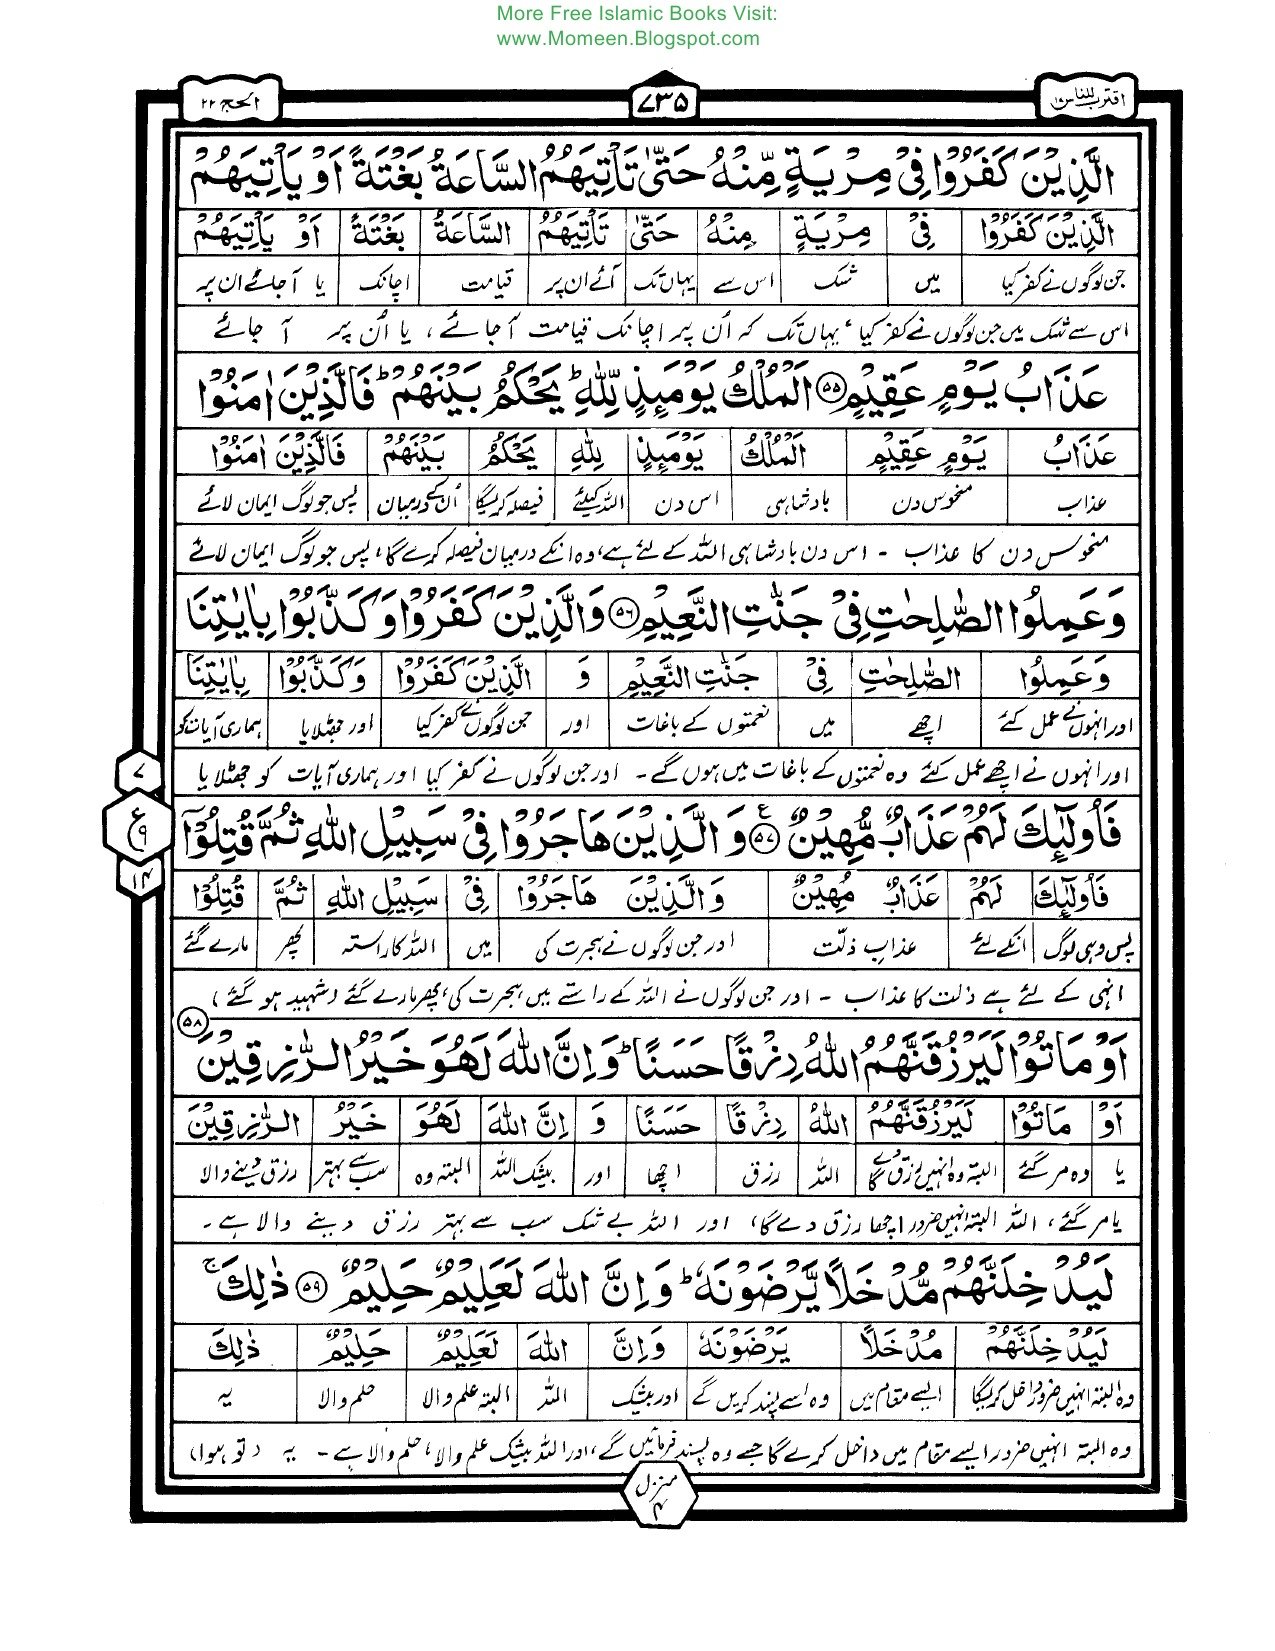 More Free Islamic Books Visit:
www.Momeen.Blogspot.com
اقترب للناس ۱۷
۷۳۵
الحج ۲۲
الَّذِیْنَ كَفَرُوْا فِیْ مِرْیَةٍ مِّنْهُ حَتّٰى تَاْتِیَهُمُ السَّاعَةُ بَغْتَةً اَوْ یَاْتِیَهُمْ
الَّذِیْنَ كَفَرُوْا فِیْ مِرْیَةٍ مِنْهُ حَتّٰى تَاْتِیَهُمُ السَّاعَةُ بَغْتَةً اَوْ یَاْتِیَهُمْ
جن لوگوں نے کفر کیا میں شک اس سے یہاں تک آئے ان پر قیامت اچانک یا آجائے ان پر
اس سے شک میں جن لوگوں نے کفر کیا، یہاں تک کہ اُن پر اچانک قیامت آجائے، یا اُن پر آ جائے
عَذَابُ یَوْمٍ عَقِیْمٍ ۵۵ اَلْمُلْكُ یَوْمَىِٕذٍ لِّلّٰهِ ؕ یَحْكُمُ بَیْنَهُمْ ؕ فَالَّذِیْنَ اٰمَنُوْا
عَذَابُ یَوْمٍ عَقِیْمٍ اَلْمُلْكُ یَوْمَىِٕذٍ لِلّٰهِ یَحْكُمُ بَیْنَهُمْ فَالَّذِیْنَ اٰمَنُوْا
عذاب منحوس دن بادشاہی اس دن اللہ کیلئے فیصلہ کریگا اُن کے درمیان پس جو لوگ ایمان لائے
منحوس دن کا عذاب - اس دن بادشاہی اللہ کے لئے ہے، وہ انکے درمیان فیصلہ کرے گا، پس جو لوگ ایمان لائے
وَعَمِلُوا الصّٰلِحٰتِ فِیْ جَنّٰتِ النَّعِیْمِ ۵۶ وَالَّذِیْنَ كَفَرُوْا وَكَذَّبُوْا بِاٰیٰتِنَا
وَعَمِلُوْا الصّٰلِحٰتِ فِیْ جَنّٰتِ النَّعِیْمِ وَ الَّذِیْنَ كَفَرُوْا وَكَذَّبُوْا بِاٰیٰتِنَا
اور انہوں نے عمل کئے اچھے میں نعمتوں کے باغات اور جن لوگوں نے کفر کیا اور جھٹلایا ہماری آیات کو
اور انہوں نے اچھے عمل کئے وہ نعمتوں کے باغات میں ہوں گے - اور جن لوگوں نے کفر کیا اور ہماری آیات کو جھٹلایا
۷
ع
۹
۱۴
فَاُولٰٓىِٕكَ لَهُمْ عَذَابٌ مُّهِیْنٌ ۵۷ ع وَالَّذِیْنَ هَاجَرُوْا فِیْ سَبِیْلِ اللّٰهِ ثُمَّ قُتِلُوْٓا
فَاُولٰٓىِٕكَ لَهُمْ عَذَابٌ مُهِیْنٌ وَالَّذِیْنَ هَاجَرُوْا فِیْ سَبِیْلِ اللّٰهِ ثُمَّ قُتِلُوْٓا
پس وہی لوگ انکے لئے عذاب ذلّت اور جن لوگوں نے ہجرت کی میں اللہ کا راستہ پھر مارے گئے
انہی کے لئے ہے ذلت کا عذاب - اور جن لوگوں نے اللہ کے راستے میں ہجرت کی، پھر مارے گئے (شہید ہوگئے)
اَوْ مَاتُوْا لَیَرْزُقَنَّهُمُ اللّٰهُ رِزْقًا حَسَنًا ؕ وَاِنَّ اللّٰهَ لَهُوَ خَیْرُ الرّٰزِقِیْنَ ۵۸
اَوْ مَاتُوْا لَیَرْزُقَنَّهُمُ اللّٰهُ رِزْقًا حَسَنًا وَ اِنَّ اللّٰهَ لَهُوَ خَیْرُ الرّٰزِقِیْنَ
یا وہ مر گئے البتہ وہ انہیں رزق دے گا اللہ رزق اچھا اور بیشک اللہ البتہ وہ سب سے بہتر رزق دینے والا
یا مر گئے، اللہ البتہ انہیں ضرور اچھا رزق دے گا، اور اللہ بے شک سب سے بہتر رزق دینے والا ہے -
لَیُدْخِلَنَّهُمْ مُّدْخَلًا یَّرْضَوْنَهٗ ؕ وَاِنَّ اللّٰهَ لَعَلِیْمٌ حَلِیْمٌ ۵۹ ذٰلِكَ ۚ
لَیُدْخِلَنَّهُمْ مُدْخَلًا یَرْضَوْنَهٗ وَاِنَّ اللّٰهَ لَعَلِیْمٌ حَلِیْمٌ ذٰلِكَ
وہ البتہ انہیں ضرور داخل کریگا ایسے مقام میں وہ اسے پسند کریں گے اور بیشک اللہ البتہ علم والا حلم والا یہ
وہ البتہ انہیں ضرور ایسے مقام میں داخل کرے گا جسے وہ پسند فرمائیں گے، اور اللہ بیشک علم والا، حلم والا ہے - یہ (تو ہوا)
منزل
۴